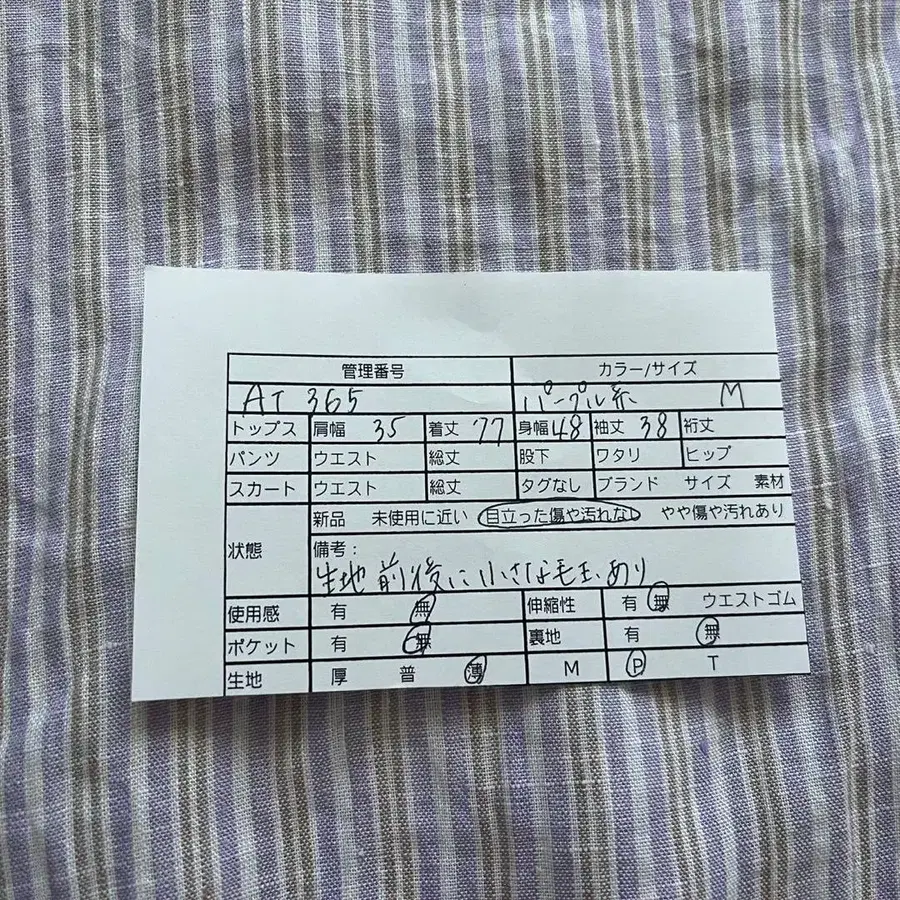 管理番号 カラー/サイズ
AT 365 パープル系 M
トップス 肩幅 35 着丈 77 身幅 48 袖丈 38 裄丈
パンツ ウエスト 総丈 股下 ワタリ ヒップ
スカート ウエスト 総丈 タグなし ブランド サイズ 素材
状態 新品 未使用に近い 目立った傷や汚れなし やや傷や汚れあり
備考:
生地前後に小さな毛玉あり
使用感 有 無 伸縮性 有 無 ウエストゴム
ポケット 有 無 裏地 有 無
生地 厚 普 薄 M P T